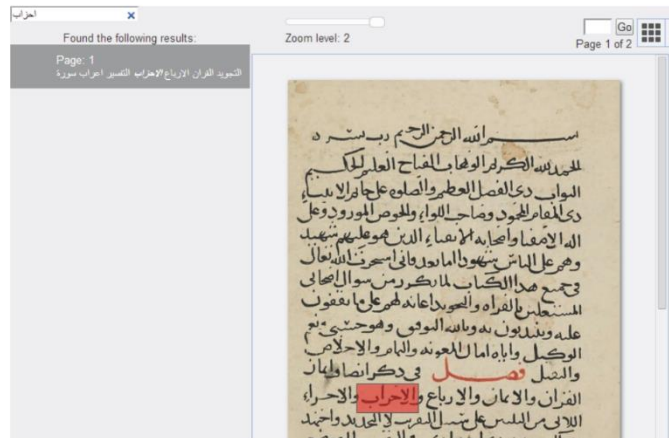 احزاب
Found the following results:
Page: 1
التجويد القران الارباع الاحزاب التفسير اعراب سورة
Zoom level: 2
Go
Page 1 of 2
بسم الله الرحمن الرحيم رب يسر
الحمد لله الكريم الوهاب الفتاح العليم الحكيم
التواب ذي الفضل العظيم والصلوة على خاتم الانبياء
ذي المقام المحمود وصاحب اللواء والحوض المورود وعلى
اله الاصفياء واصحابه الاتقياء الذين هو عليهم شهيد
وهم على الناس شهود اما بعد فاني استخرت الله تعالى
في جمع هذا الكتاب لما تكرر من سوال اصحابي
المشتغلين بالقراه والتجويد اعانه لهم على ما يقفون
عليه ويبتدون به وبالله التوفيق وهو حسبي ونعم
الوكيل واياه اسال المعونه والهام والاخلاص
فصل في ذكر انصاف اثمان
القران والاثمان والارباع والاحزاب والاجزاء